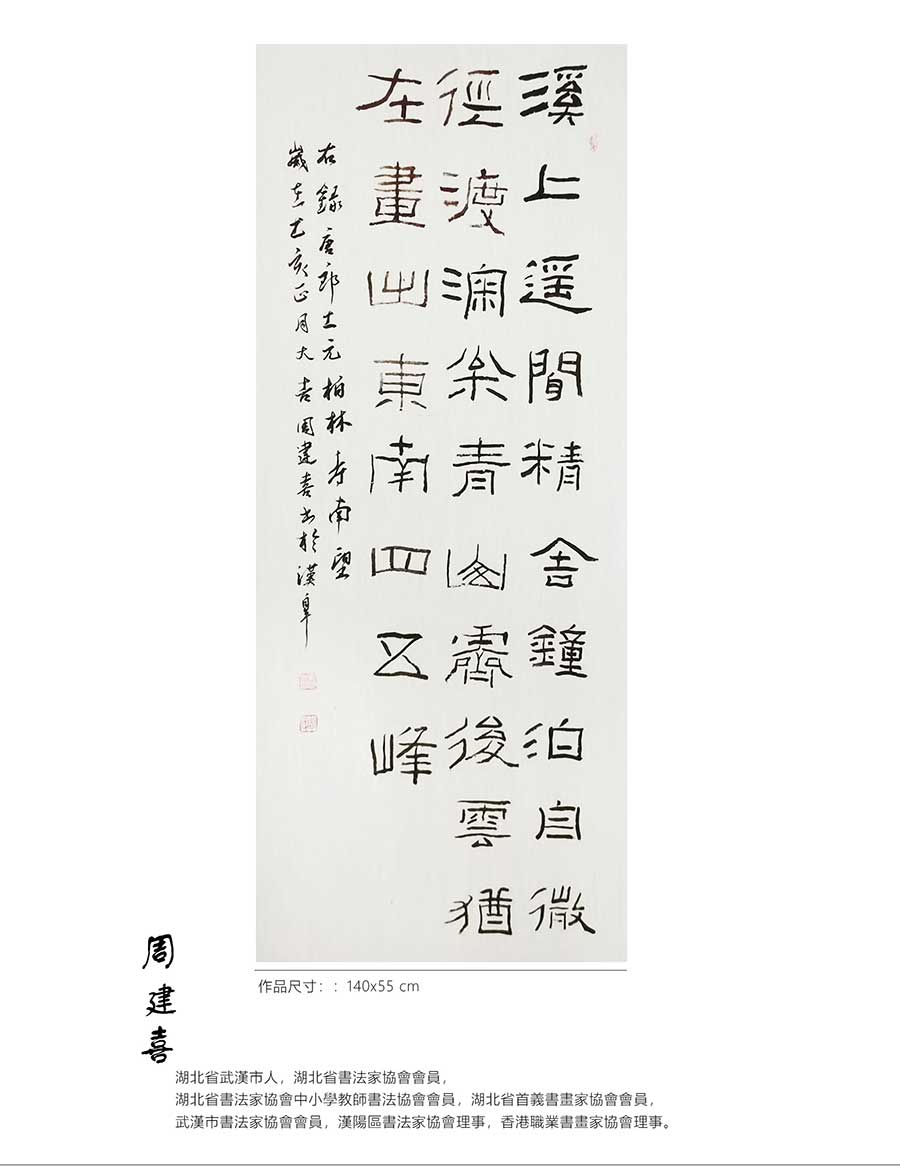 溪上遥聞精舍鐘泊舟微
徑渡深枩青山霽後雲猶
在畫出東南四五峰
右錄唐郎士元柏林寺南望
歲在己亥正月大吉周建喜书於漢皋
作品尺寸：：140x55 cm
周建喜
湖北省武漢市人，湖北省書法家協會會員，
湖北省書法家協會中小學教師書法協會會員，湖北省首義書畫家協會會員，
武漢市書法家協會會員，漢陽區書法家協會理事，香港職業書畫家協會理事。